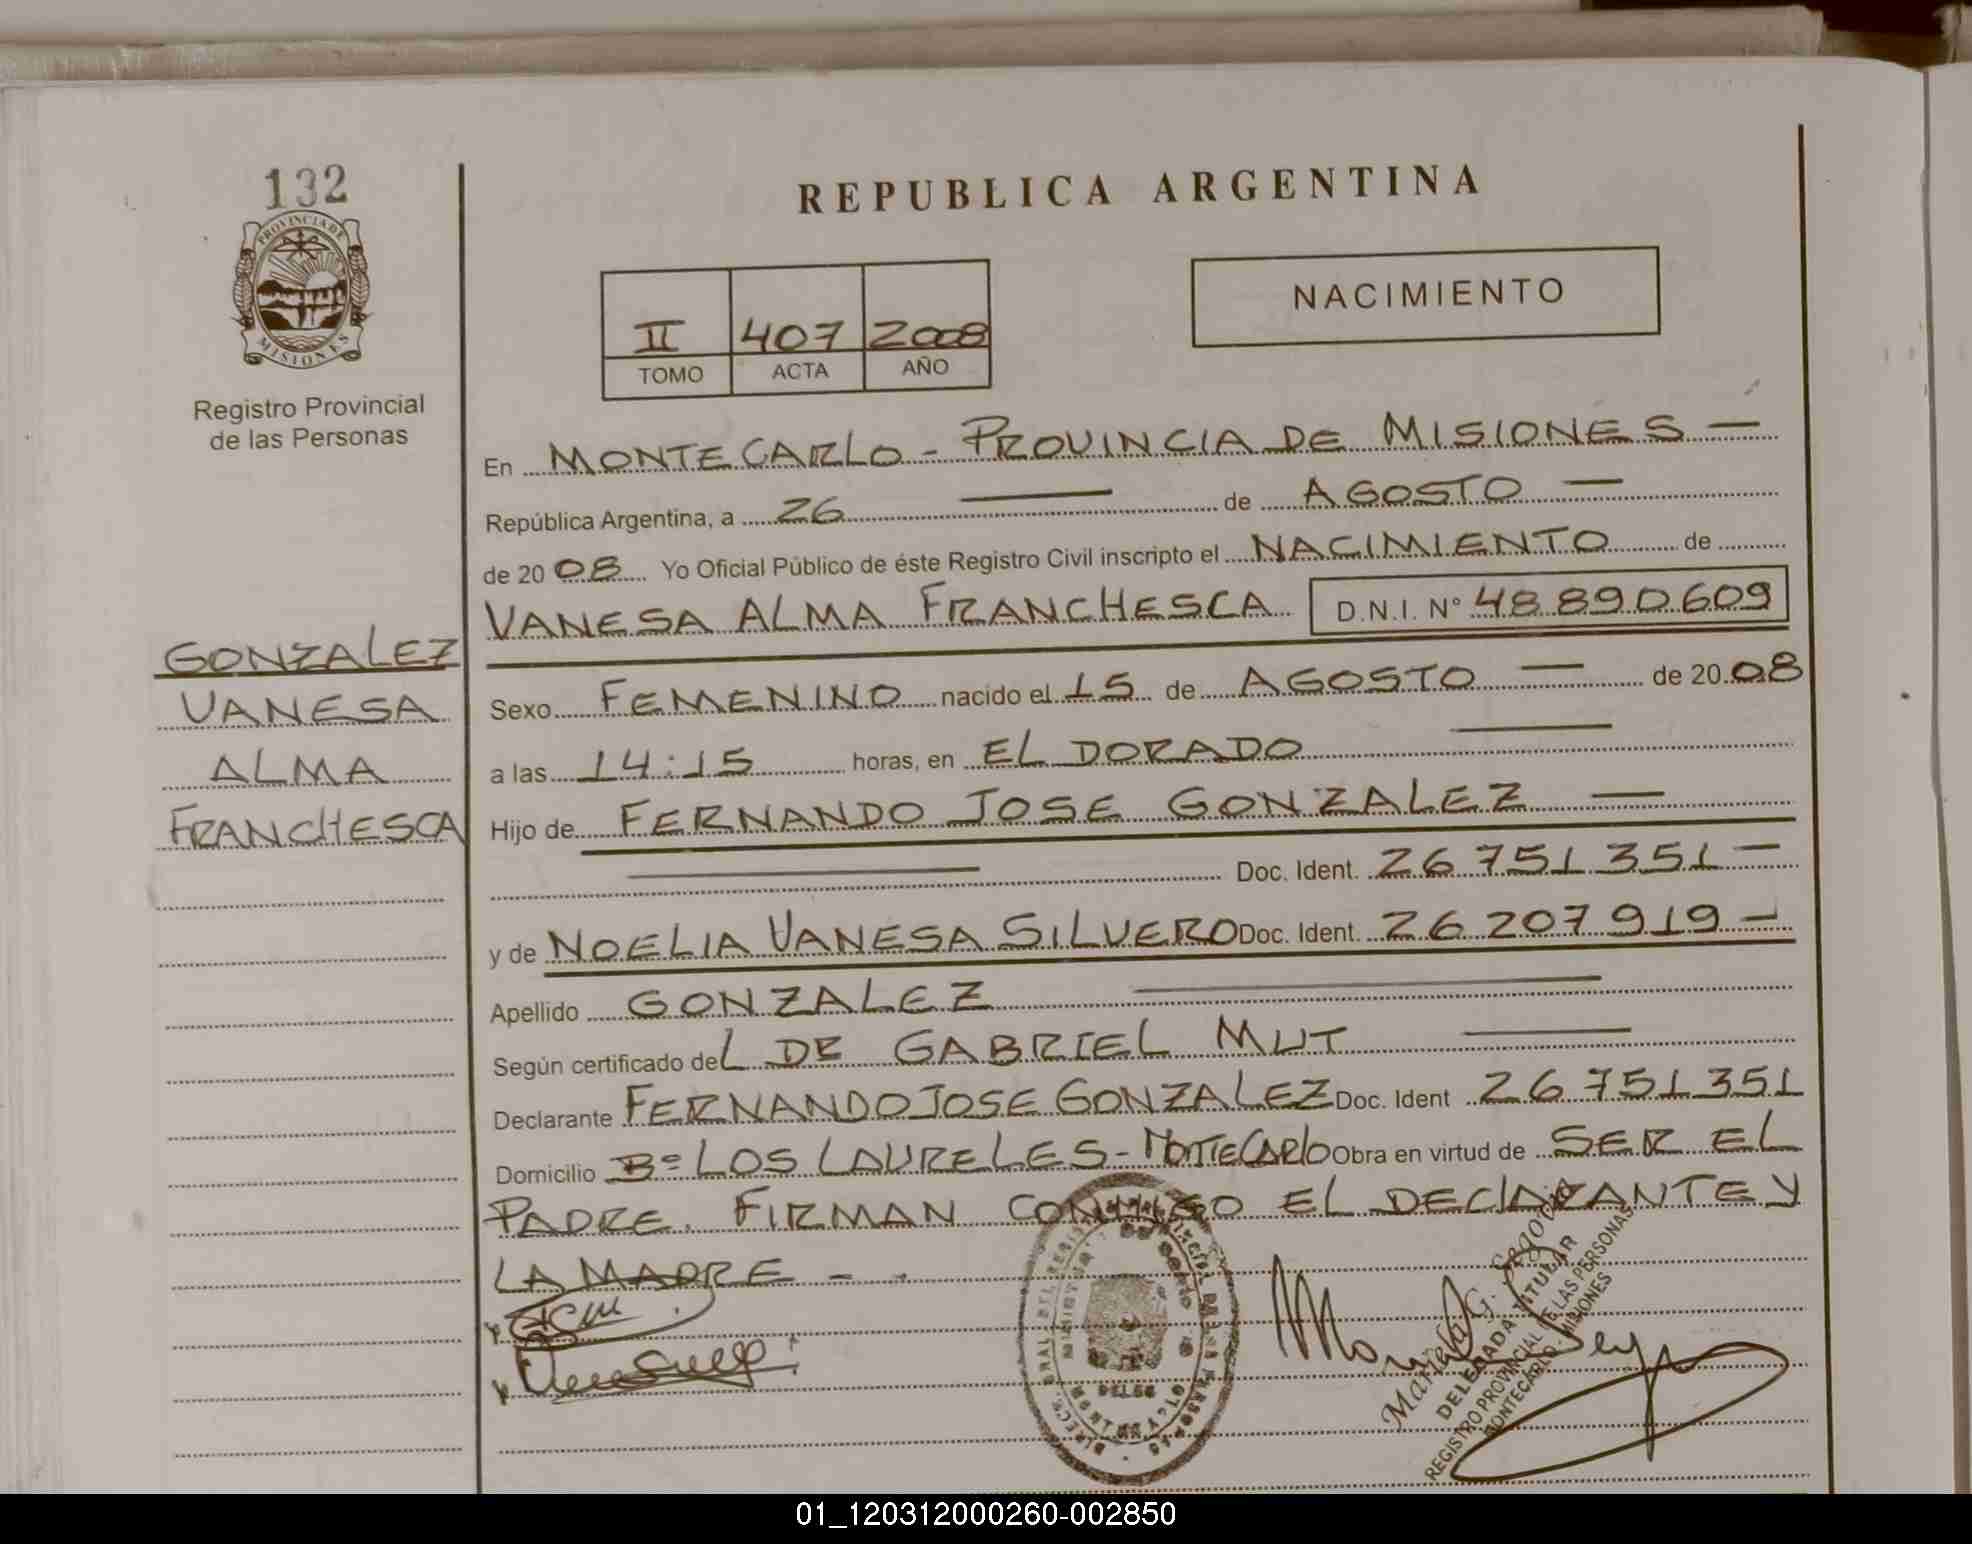 132
PROVINCIA DE
MISIONES
Registro Provincial
de las Personas
GONZALEZ
VANESA
ALMA
FRANCHESCA
REPUBLICA ARGENTINA
II 407 2008
TOMO ACTA AÑO
NACIMIENTO
En MONTECARLO - PROVINCIA DE MISIONES —
República Argentina, a 26 — de AGOSTO —
de 20 08 Yo Oficial Público de éste Registro Civil inscripto el NACIMIENTO de
VANESA ALMA FRANCHESCA D.N.I. N° 48 890 609
Sexo FEMENINO nacido el 15 de AGOSTO — de 20 08
a las 14:15 horas, en EL DORADO —
Hijo de FERNANDO JOSE GONZALEZ —
— Doc. Ident. 26 751 351 —
y de NOELIA VANESA SILVERO Doc. Ident. 26 207 919 —
Apellido GONZALEZ —
Según certificado del DE GABRIEL MUT —
Declarante FERNANDO JOSE GONZALEZ Doc. Ident 26 751 351
Domicilio B° LOS LAURELES - MONTECARLO Obra en virtud de SER EL
PADRE. FIRMAN CONMIGO EL DECLARANTE Y
LA MADRE - -
DELEGADA TITULAR
REGISTRO PROVINCIAL DE LAS PERSONAS
MONTECARLO - MISIONES
01_120312000260-002850